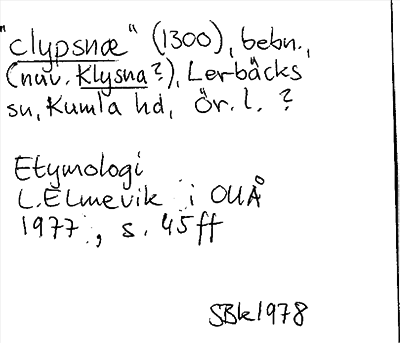 "clypsnæ" (1300), bebn.,
(nuv. Klysna?), Lerbäcks
sn, Kumla hd, Ör. l. ?
Etymologi
L. Elmevik i OUÅ
1977, s. 45 ff
SBk 1978